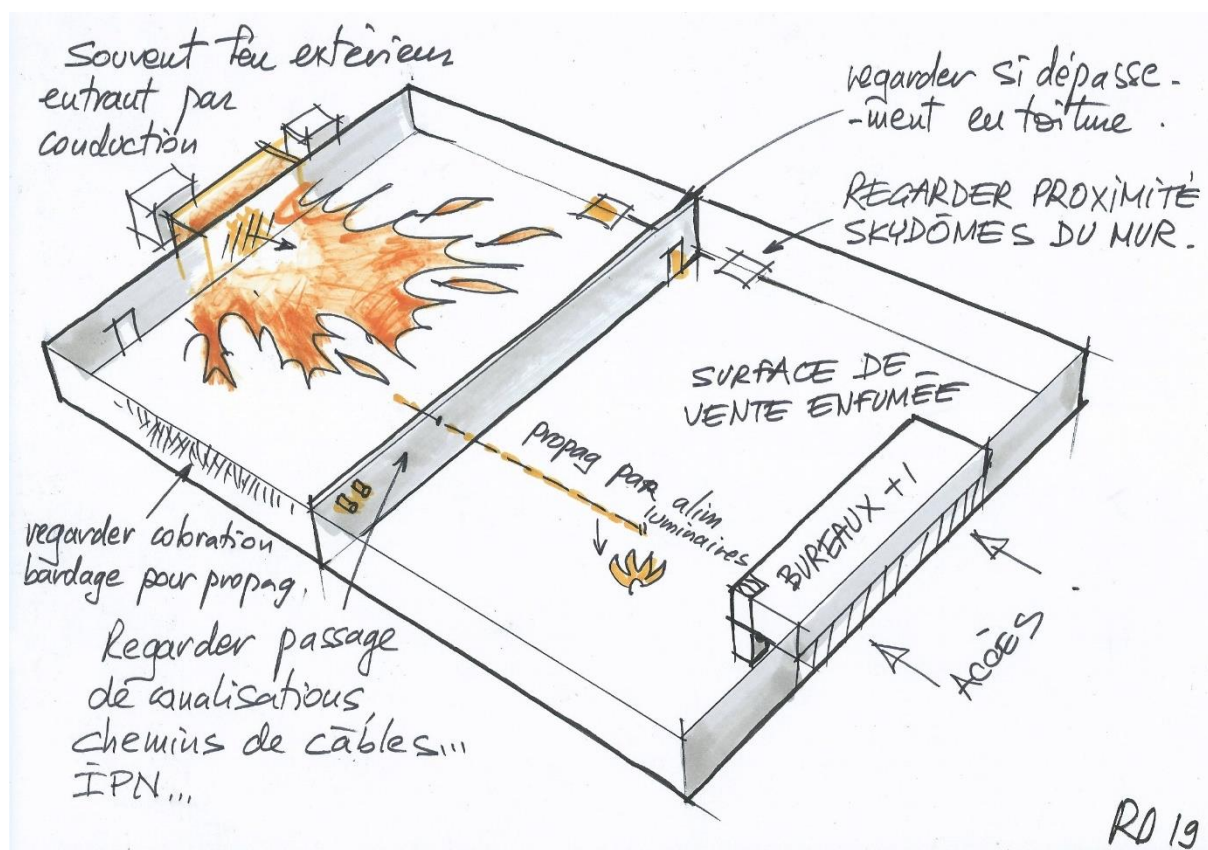 Souvent feu extérieur
entrant par
conduction
regarder si dépasse-
-ment en toiture.
REGARDER PROXIMITÉ
SKYDÔMES DU MUR.
SURFACE DE
VENTE ENFUMÉE
propag par alim
luminaires
BUREAUX +1
ACCÈS
regarder coloration
bardage pour propag.
Regarder passage
de canalisations
chemins de câbles...
IPN...
RD 19